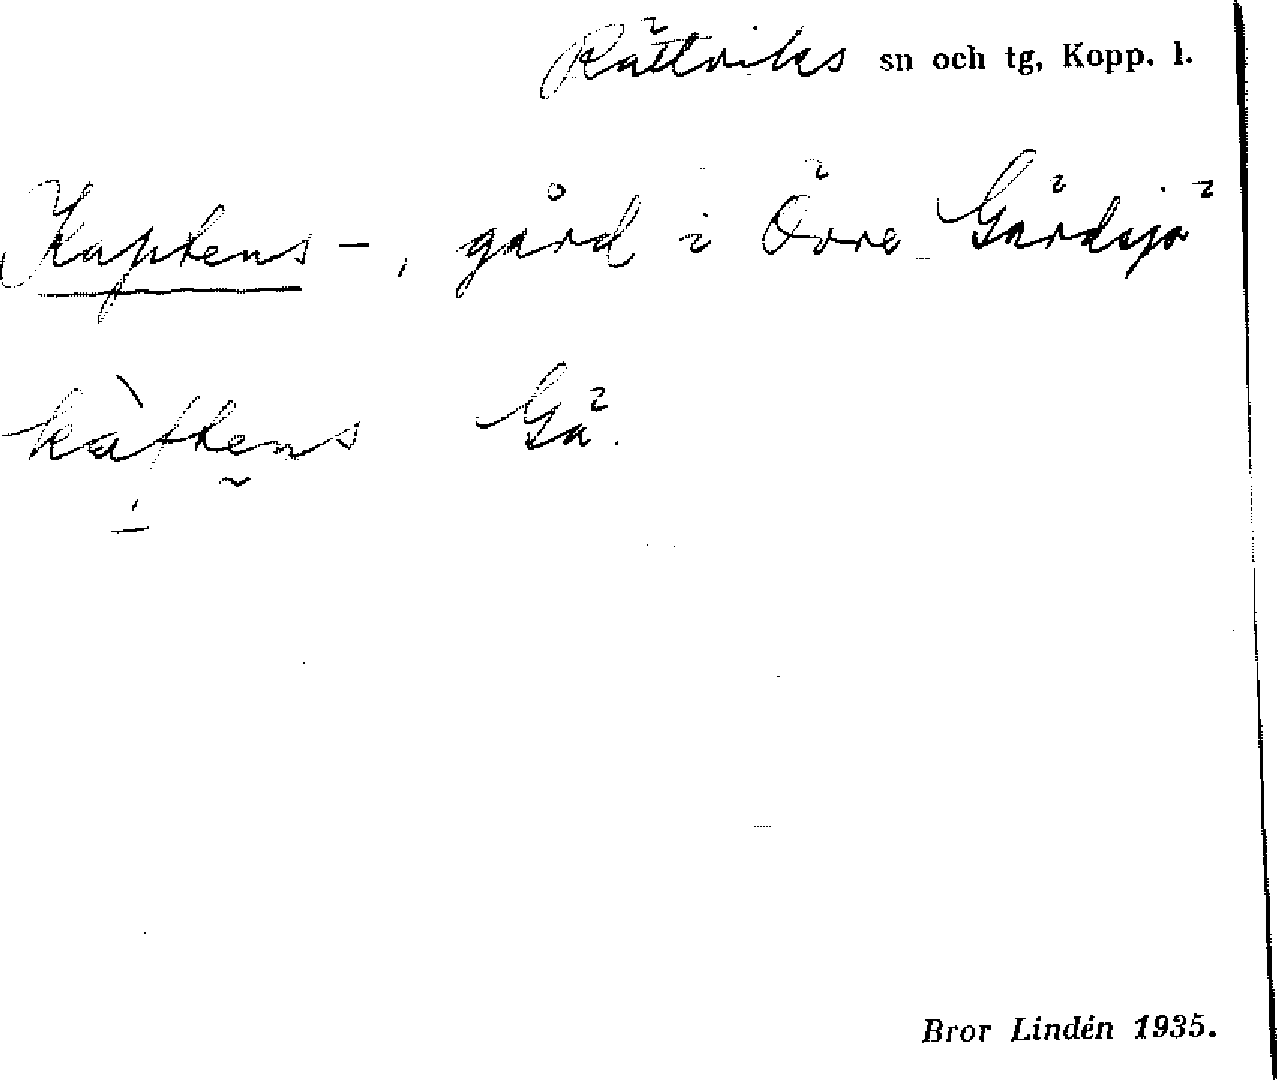 Rättviks sn och tg, Kopp. l.
Kaptens –, gård i Övre Gärdsjö
kàftens Gä.
Bror Lindén 1935.